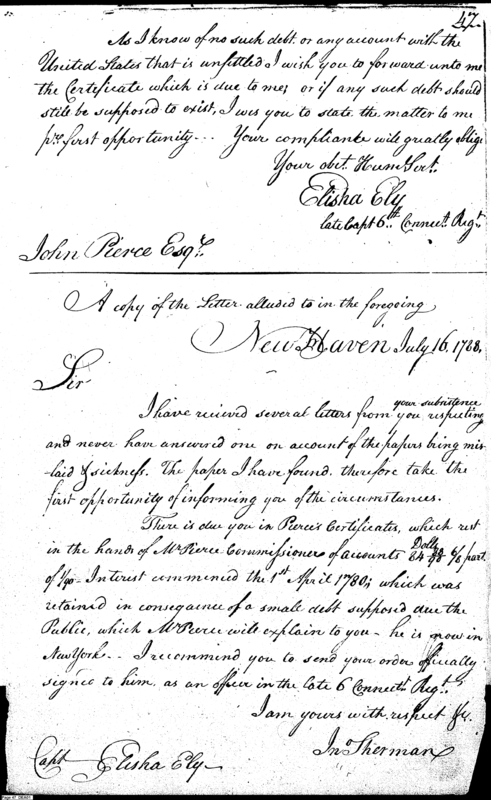 47
As I know of no such debt or any account with the
United States that is unsettled I wish you to forward unto me
the Certificate which is due to me; or if any such debt should
still be supposed to exist, I wis you to state the matter to me
pr. first opportunity... Your compliance will greatly oblige
Your obet. Hum Sert.
Elisha Ely
late Capt 6th Connect. Regt.
John Pierce Esqr.
A copy of the Letter alluded to in the foregoing
New Haven July 16, 1788,
Sir
I have recieved several letters from you respecting
your subsistence
and never have answered one on account of the papers being mis
-laid & sickness. The paper I have found. therefore take the
first opportunity of informing you of the circumstances.
There is due you in Pierce's Certificates, which rest
in the hands of Mr Pierce Commissioner of accounts 84
Dolls
part
of Interest commenced the 1st April 1780; which was
retained in consequence of a small debt supposed due the
Public, which Mr Pierce will explain to you - he is now in
New York - I recommend you to send your order officially
signed to him, as an officer in the late 6 Connect. Regt.
I am yours with respect &c.
Jno Sherman
Capt Elisha Ely